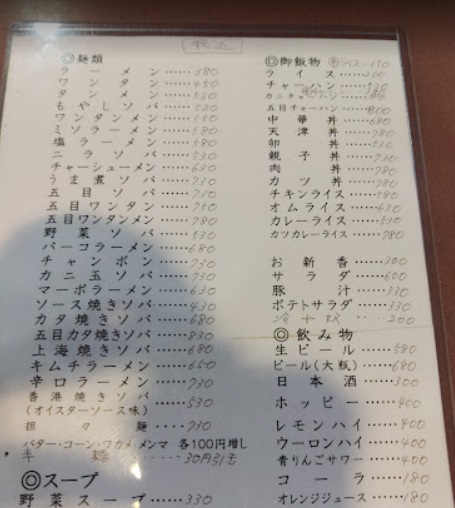 税込
◎麺類
ラーメン……
ワンタン……450
タンメン……530
もやしソバ……530
ワンタンメン……
ミソラーメン……580
塩ラーメン……580
ニラソバ……530
チャーシューメン……630
うま煮ソバ……730
五目ソバ……730
五目ワンタン……750
五目ワンタンメン……780
野菜ソバ……530
パーコラーメン……680
チャンポン……730
カニ玉ソバ……730
マーボラーメン……630
ソース焼きソバ……430
カタ焼きソバ……680
五目カタ焼きソバ……830
上海焼きソバ……680
キムチラーメン……650
辛口ラーメン……730
香港焼きソバ……530
(オイスターソース味)
担々麺……730
バター・コーン・ワカメ・メンマ 各100円増し
半麺……30円引き
◎スープ
野菜スープ……330
◎御飯物
ライス……200
チャーハン……
五目チャーハン……800
中華丼……680
天津丼……780
卵丼……530
親子丼……730
肉丼……780
カツ丼……780
チキンライス……580
オムライス……630
カレーライス……530
カツカレーライス……780
お新香……300
サラダ……600
豚汁……330
ポテトサラダ……330
冷や奴……200
◎飲み物
生ビール……580
ビール(大瓶)……680
日本酒……300
ホッピー……400
レモンハイ……400
ウーロンハイ……400
青りんごサワー……400
コーラ……180
オレンジジュース……180